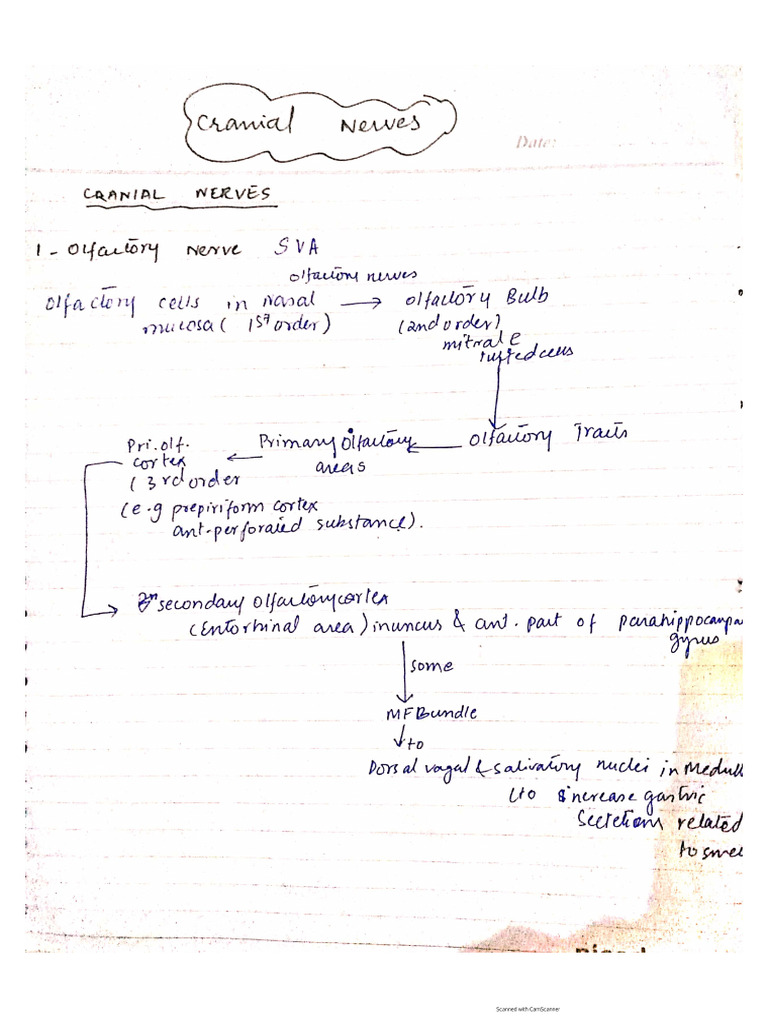 Cranial Nerves
Date:
CRANIAL NERVES
1 - Olfactory Nerve SVA
olfactory nerves
Olfactory cells in Nasal → olfactory Bulb
mucosa ( 1st order) (2nd order)
mitral &
tufted cells
Pri. olf. ← Primary Olfactory ← olfactory Tracts
cortex areas
( 3rd order
(e.g prepiriform cortex
ant. perforated substance).
secondary olfactory cortex
(Entorhinal area) in uncus & ant. part of parahippocampa
gyrus
some
MFBundle
↓ to
Dorsal vagal & salivatory nuclei in Medull
to increase gastric
Secretions related
to smel
Scanned with CamScanner